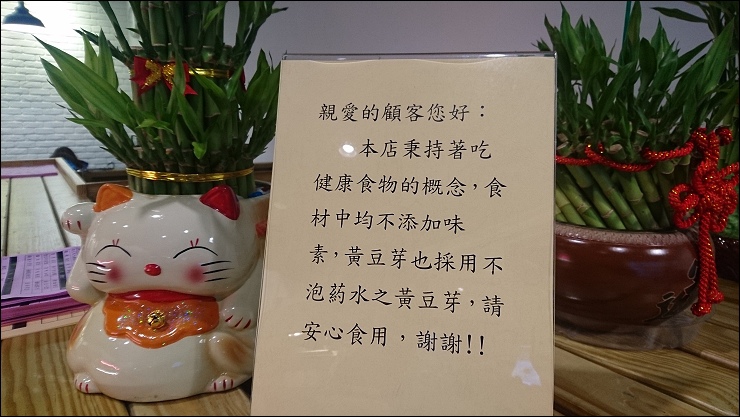 親愛的顧客您好：
本店秉持著吃
健康食物的概念，食
材中均不添加味
素，黃豆芽也採用不
泡药水之黃豆芽，請
安心食用，謝謝!!